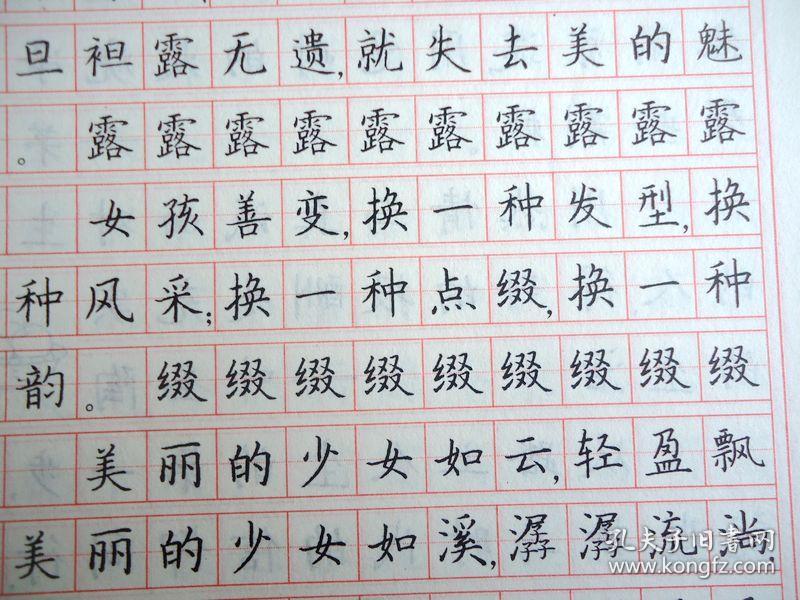 旦袒露无遗,就失去美的魅
。露露露露露露露露露
女孩善变,换一种发型,换
种风采;换一种点缀,换一种
韵。缀缀缀缀缀缀缀缀缀
美丽的少女如云,轻盈飘
美丽的少女如溪,潺潺流淌.
孔夫子旧书网
www.kongfz.com